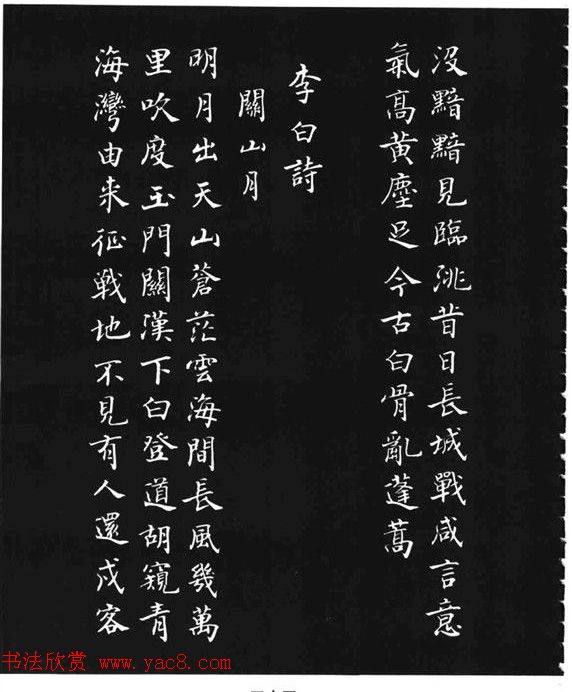 没黯黯見臨洮昔日長城戰咸言意
氣高黄塵足今古白骨亂蓬蒿
李白詩
關山月
明月出天山蒼茫雲海間長風幾萬
里吹度玉門關漢下白登道胡窺青
海灣由来征戰地不見有人還戍客
书法欣赏 www.yac8.com